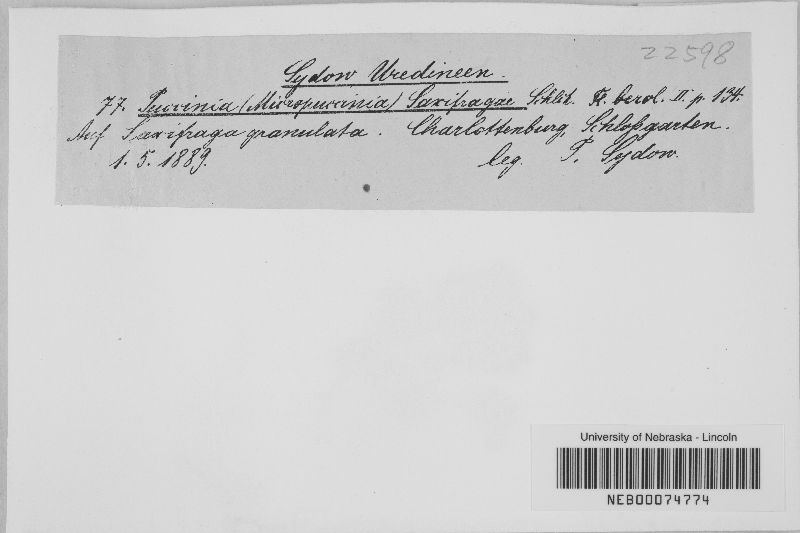 22598
Sydow Uredineen.
77. Puccinia (Micropuccinia) Saxifragae Schlcht. Fl. berol. II. p. 134.
Auf Saxifraga granulata. Charlottenburg, Schloßgarten.
1. 5. 1889. leg. P. Sydow.
University of Nebraska - Lincoln
NEB00074774